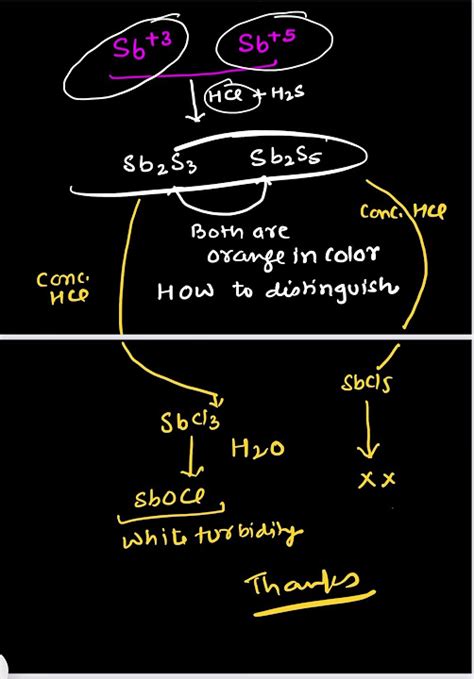 Sb+3 Sb+5
HCl + H2S
Sb2S3 Sb2S5
Both are
orange in color
HOW to distinguish
Conc. HCl
Conc.
HCl
SbCl3
H2O
SbOCl
White turbidity
SbCl5
XX
Thanks